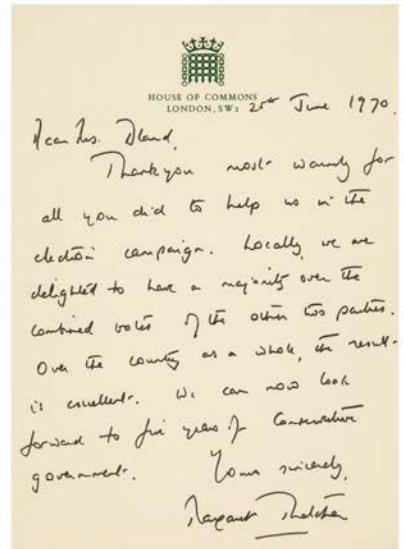 HOUSE OF COMMONS
LONDON, SW1 25th June 1970.
Dear Mrs.
Thank you most warmly for
all you did to help us in the
election campaign. Locally, we are
delighted to have a majority over the
combined votes of the other two parties.
Over the country as a whole, the result
is excellent. We can now look
forward to five years of Conservative
government.
Yours sincerely,
Margaret Thatcher